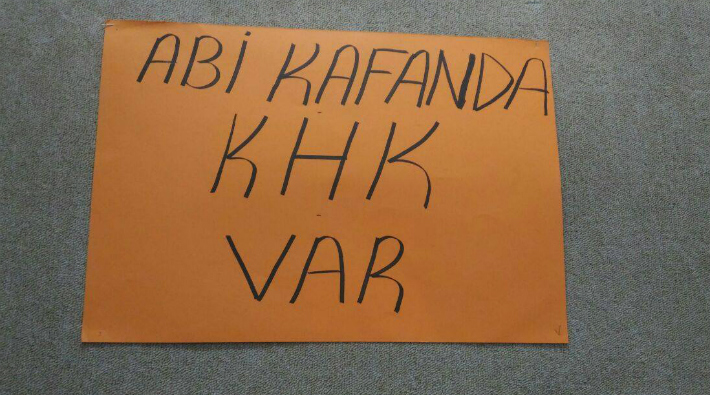 ABİ KAFANDA
KHK
VAR